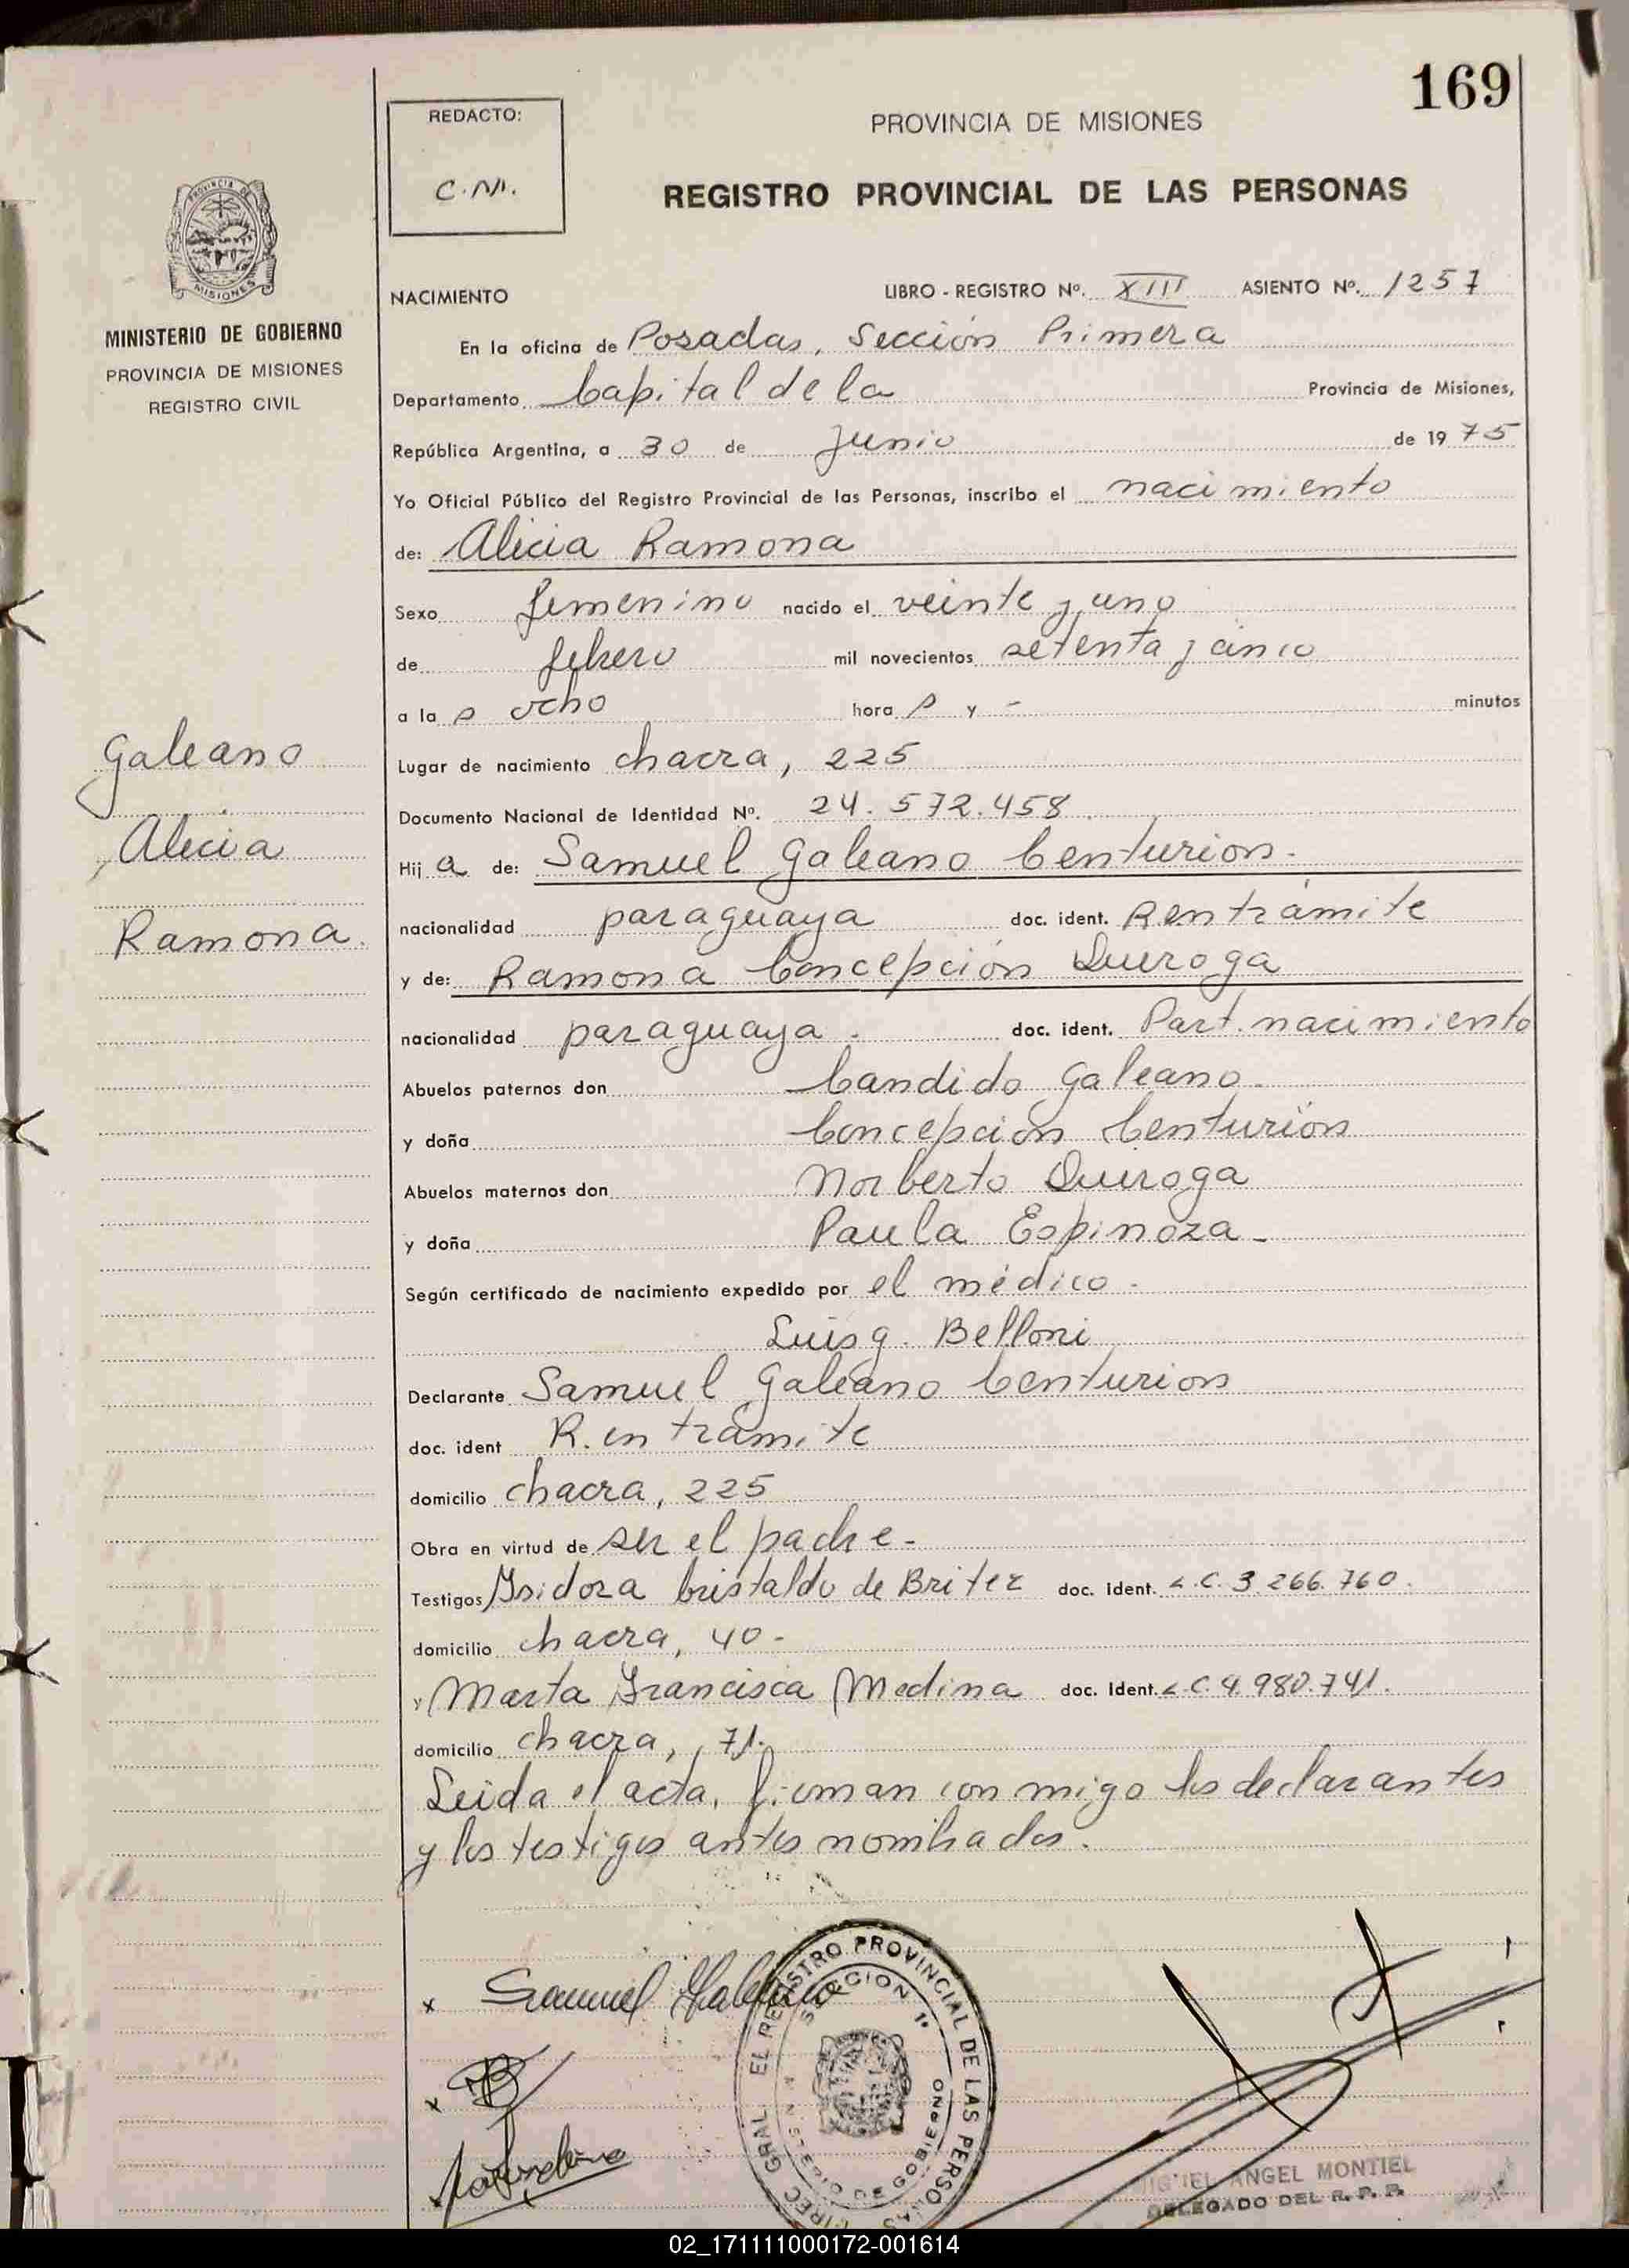 169
REDACTO:
C.M.
PROVINCIA DE MISIONES
REGISTRO PROVINCIAL DE LAS PERSONAS
PROVINCIA DE
MISIONES
MINISTERIO DE GOBIERNO
PROVINCIA DE MISIONES
REGISTRO CIVIL
NACIMIENTO LIBRO - REGISTRO Nº. XIII ASIENTO Nº. 1257
En la oficina de Posadas, Sección Primera
Departamento Capital de la Provincia de Misiones,
República Argentina, a 30 de Junio de 19 75
Yo Oficial Público del Registro Provincial de las Personas, inscribo el nacimiento
de: Alicia Ramona
Sexo femenino nacido el veinte y uno
de febrero mil novecientos setenta y cinco
a la s ocho hora s y - minutos
Galeano
Alicia
Ramona.
Lugar de nacimiento chacra, 225
Documento Nacional de Identidad Nº. 24.572.458
Hij a de: Samuel Galeano Centurion.
nacionalidad paraguaya doc. ident. R. en trámite
y de: Ramona Concepción Quiroga
nacionalidad paraguaya. doc. ident. Part. nacimiento
Abuelos paternos don Candido Galeano.
y doña Concepción Centurión
Abuelos maternos don Norberto Quiroga
y doña Paula Espinoza -
Según certificado de nacimiento expedido por el médico.
Luis g. Belloni
Declarante Samuel Galeano Centurion
doc. ident R. en trámite
domicilio chacra, 225
Obra en virtud de ser el padre -
Testigos Isidora Cristaldo de Britez doc. ident. L.C. 3.266.760.
domicilio chacra, 40 -
y Marta Francisca Medina doc. Ident. L.C. 4.980.741.
domicilio chacra, 71.
Leida el acta, firman con migo los declarantes
y los testigos antes nombrados.
x Samuel Galeano
x
DIREC GRAL. EL REGISTRO PROVINCIAL DE LAS PERSONAS
SECCION 1ª
MINISTERIO DE GOBIERNO
MIGUEL ANGEL MONTIEL
DELEGADO DEL R. P. P.
02_171111000172-001614